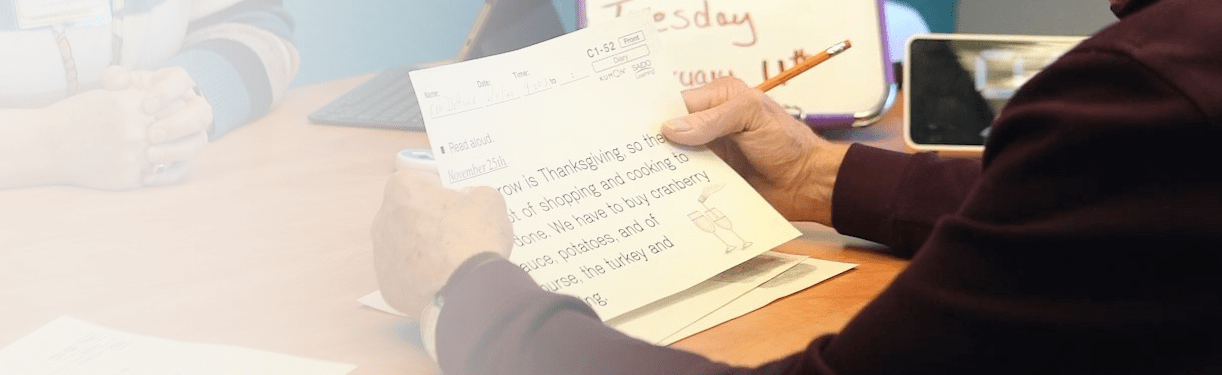 Tuesday
ruary 11th
C1-52 Front
Diary
KUMON SAIDO
Learning
Name: Date: Time: to :
Read aloud.
November 25th
row is Thanksgiving, so the
ot of shopping and cooking to
done. We have to buy cranberry
auce, potatoes, and of
ourse, the turkey and
ng.